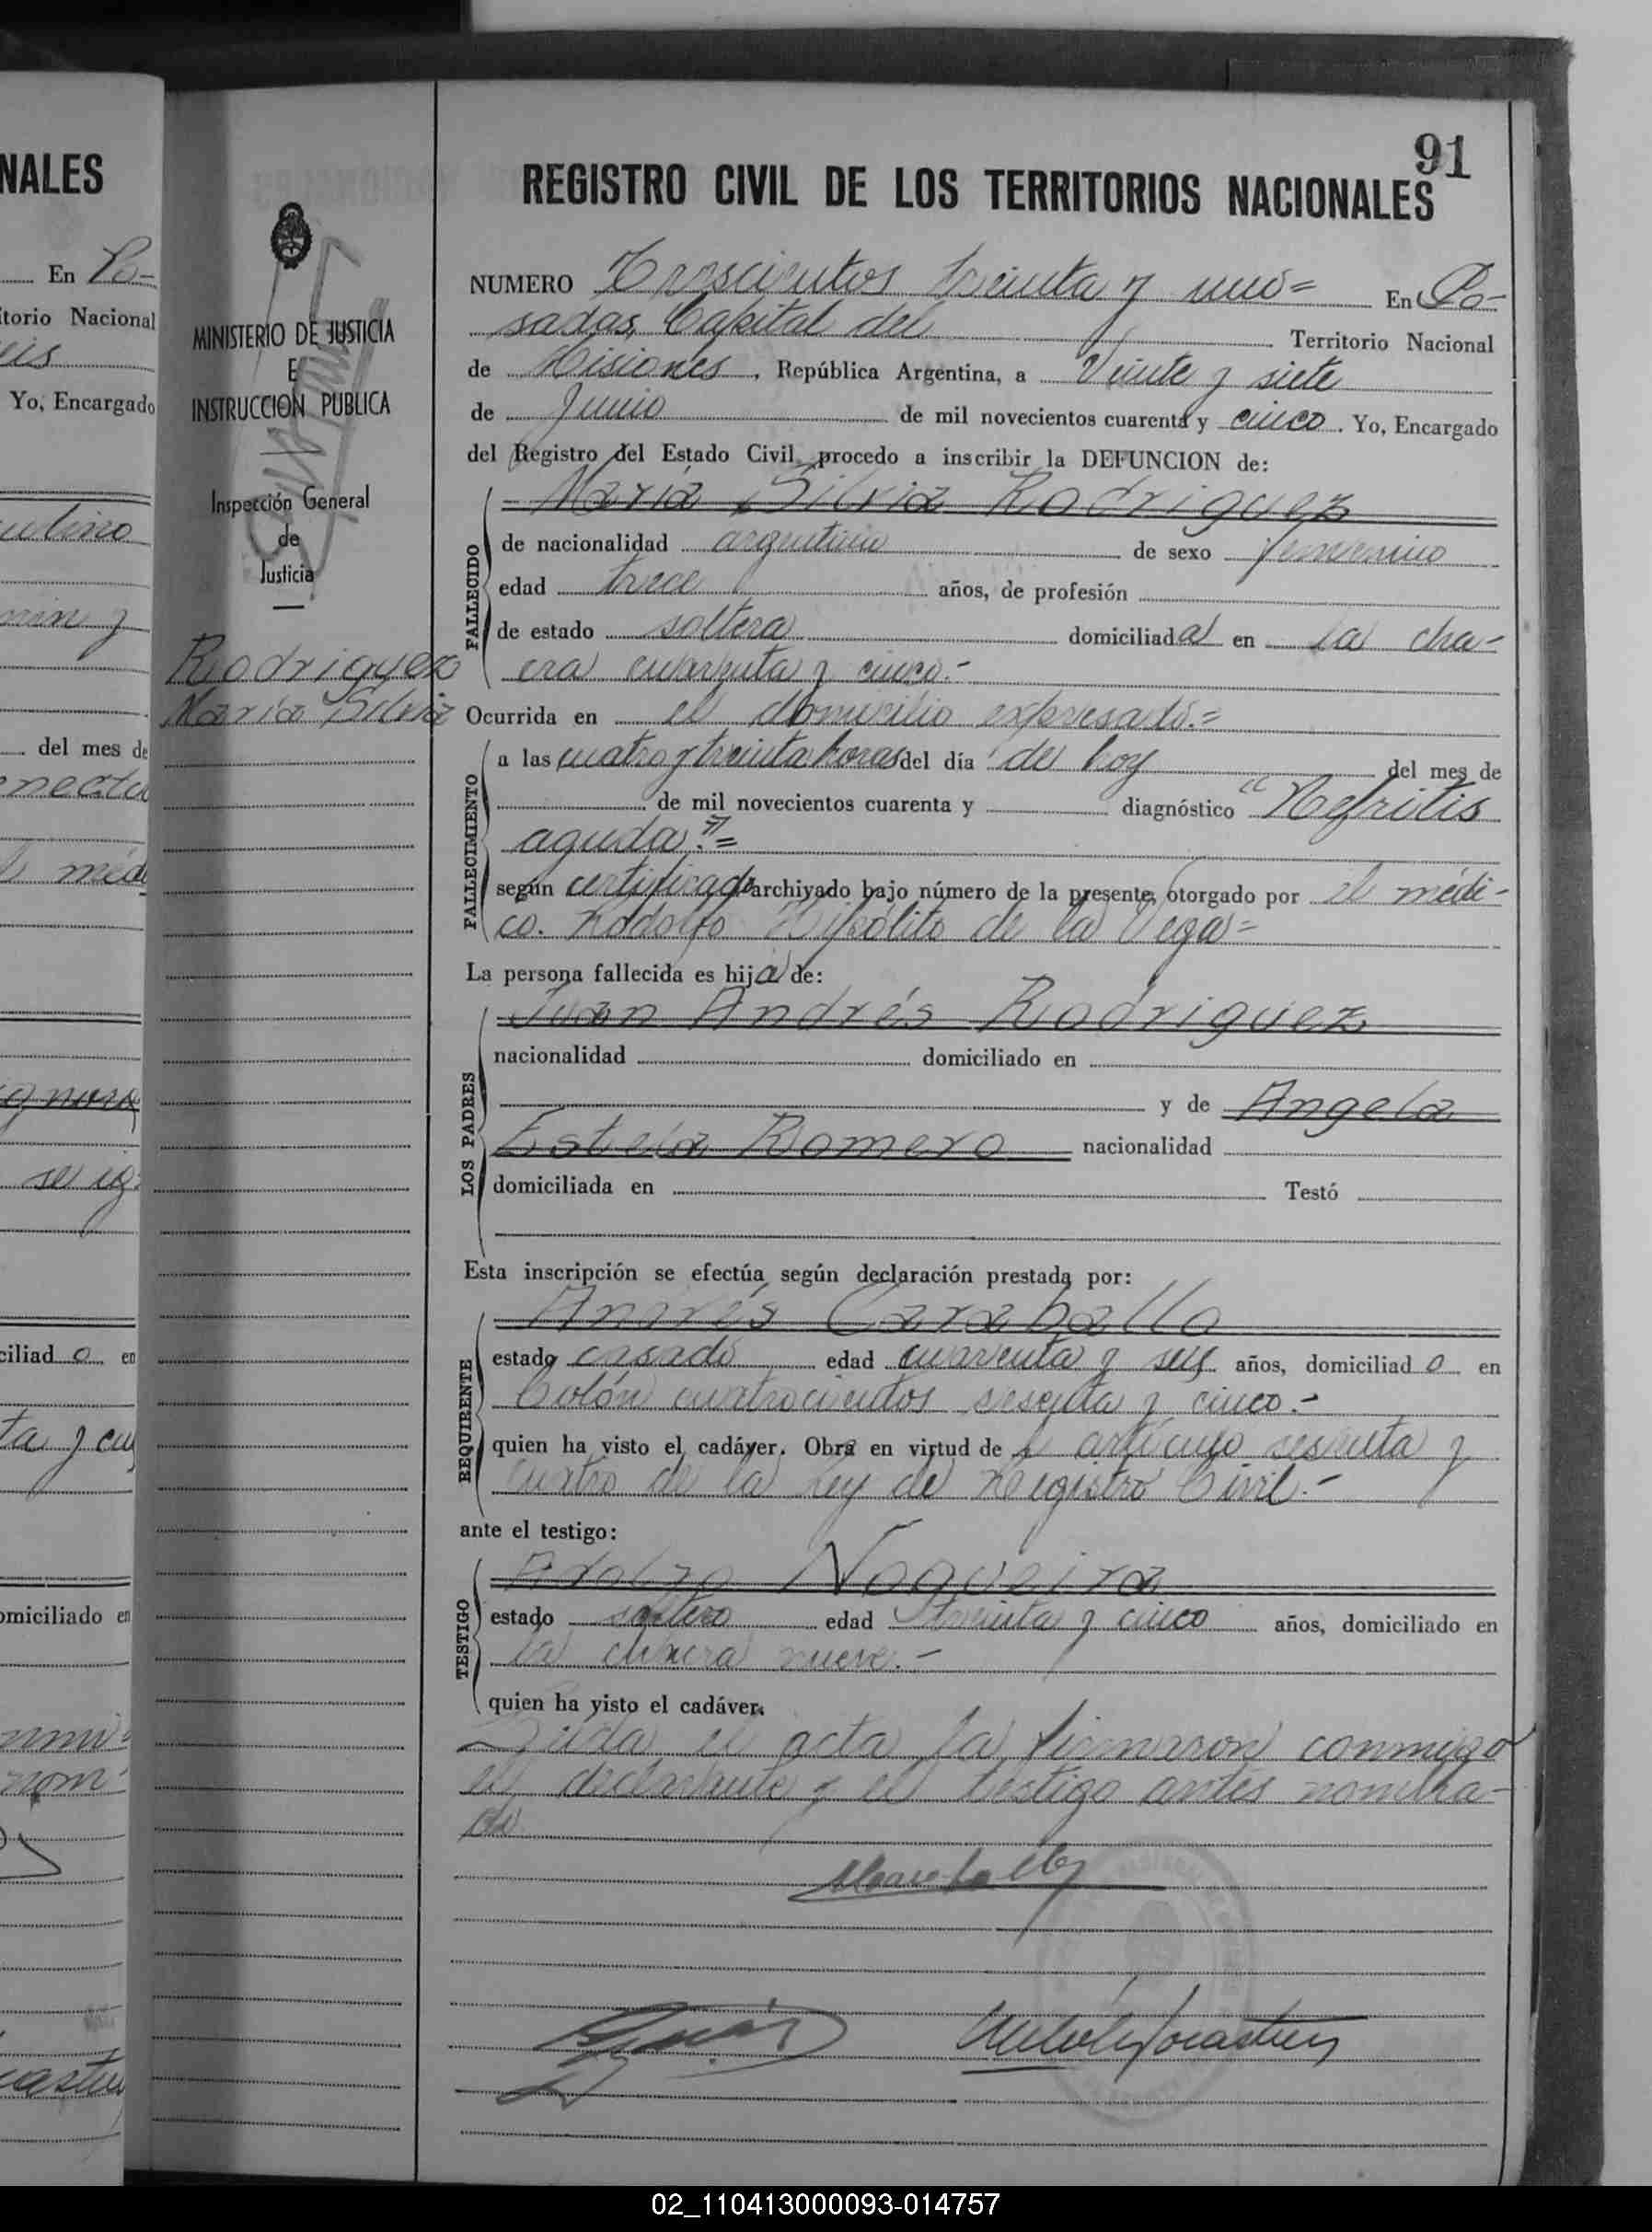 NALES
En Po-
itorio Nacional
eis
Yo, Encargado
del mes de
ciliad o en
omiciliado en
MINISTERIO DE JUSTICIA
E
INSTRUCCION PUBLICA
Inspección General
de
Justicia
Rodriguez
María Silvia
91
REGISTRO CIVIL DE LOS TERRITORIOS NACIONALES
NUMERO Trescientos treinta y uno= En Po-
sadas, Capital del Territorio Nacional
de Misiones, República Argentina, a Veinte y siete
de Junio de mil novecientos cuarenta y cinco. Yo, Encargado
del Registro del Estado Civil, procedo a inscribir la DEFUNCION de:
María Silvia Rodriguez
FALLECIDO
de nacionalidad argentina de sexo femenino
edad trece años, de profesión
de estado soltera domiciliada en la cha-
cra cuarenta y cinco.-
Ocurrida en el domicilio expresado.=
FALLECIMIENTO
a las cuatro y treinta horas del día de hoy del mes de
de mil novecientos cuarenta y diagnóstico "Nefritis
aguda".=
según certificado archivado bajo número de la presente, otorgado por el médi-
co. Rodolfo Hipólito de la Vega=
La persona fallecida es hija de:
Juan Andrés Rodriguez
LOS PADRES
nacionalidad domiciliado en
y de Angela
Estela Romero nacionalidad
domiciliada en Testó
Esta inscripción se efectúa según declaración prestada por:
Andrés Caraballo
REQUIRENTE
estado casado edad cuarenta y seis años, domiciliado en
Colón cuatrocientos sesenta y cinco.-
quien ha visto el cadáver. Obra en virtud de l artículo sesenta y
cuatro de la Ley de Registro Civil.-
ante el testigo:
Adolfo Nogueira
TESTIGO
estado soltero edad treinta y cinco años, domiciliado en
la chacra nueve.-
quien ha visto el cadáver.
Leída el acta la firmaron conmigo
el declarante y el testigo antes nombra-
do
02_110413000093-014757